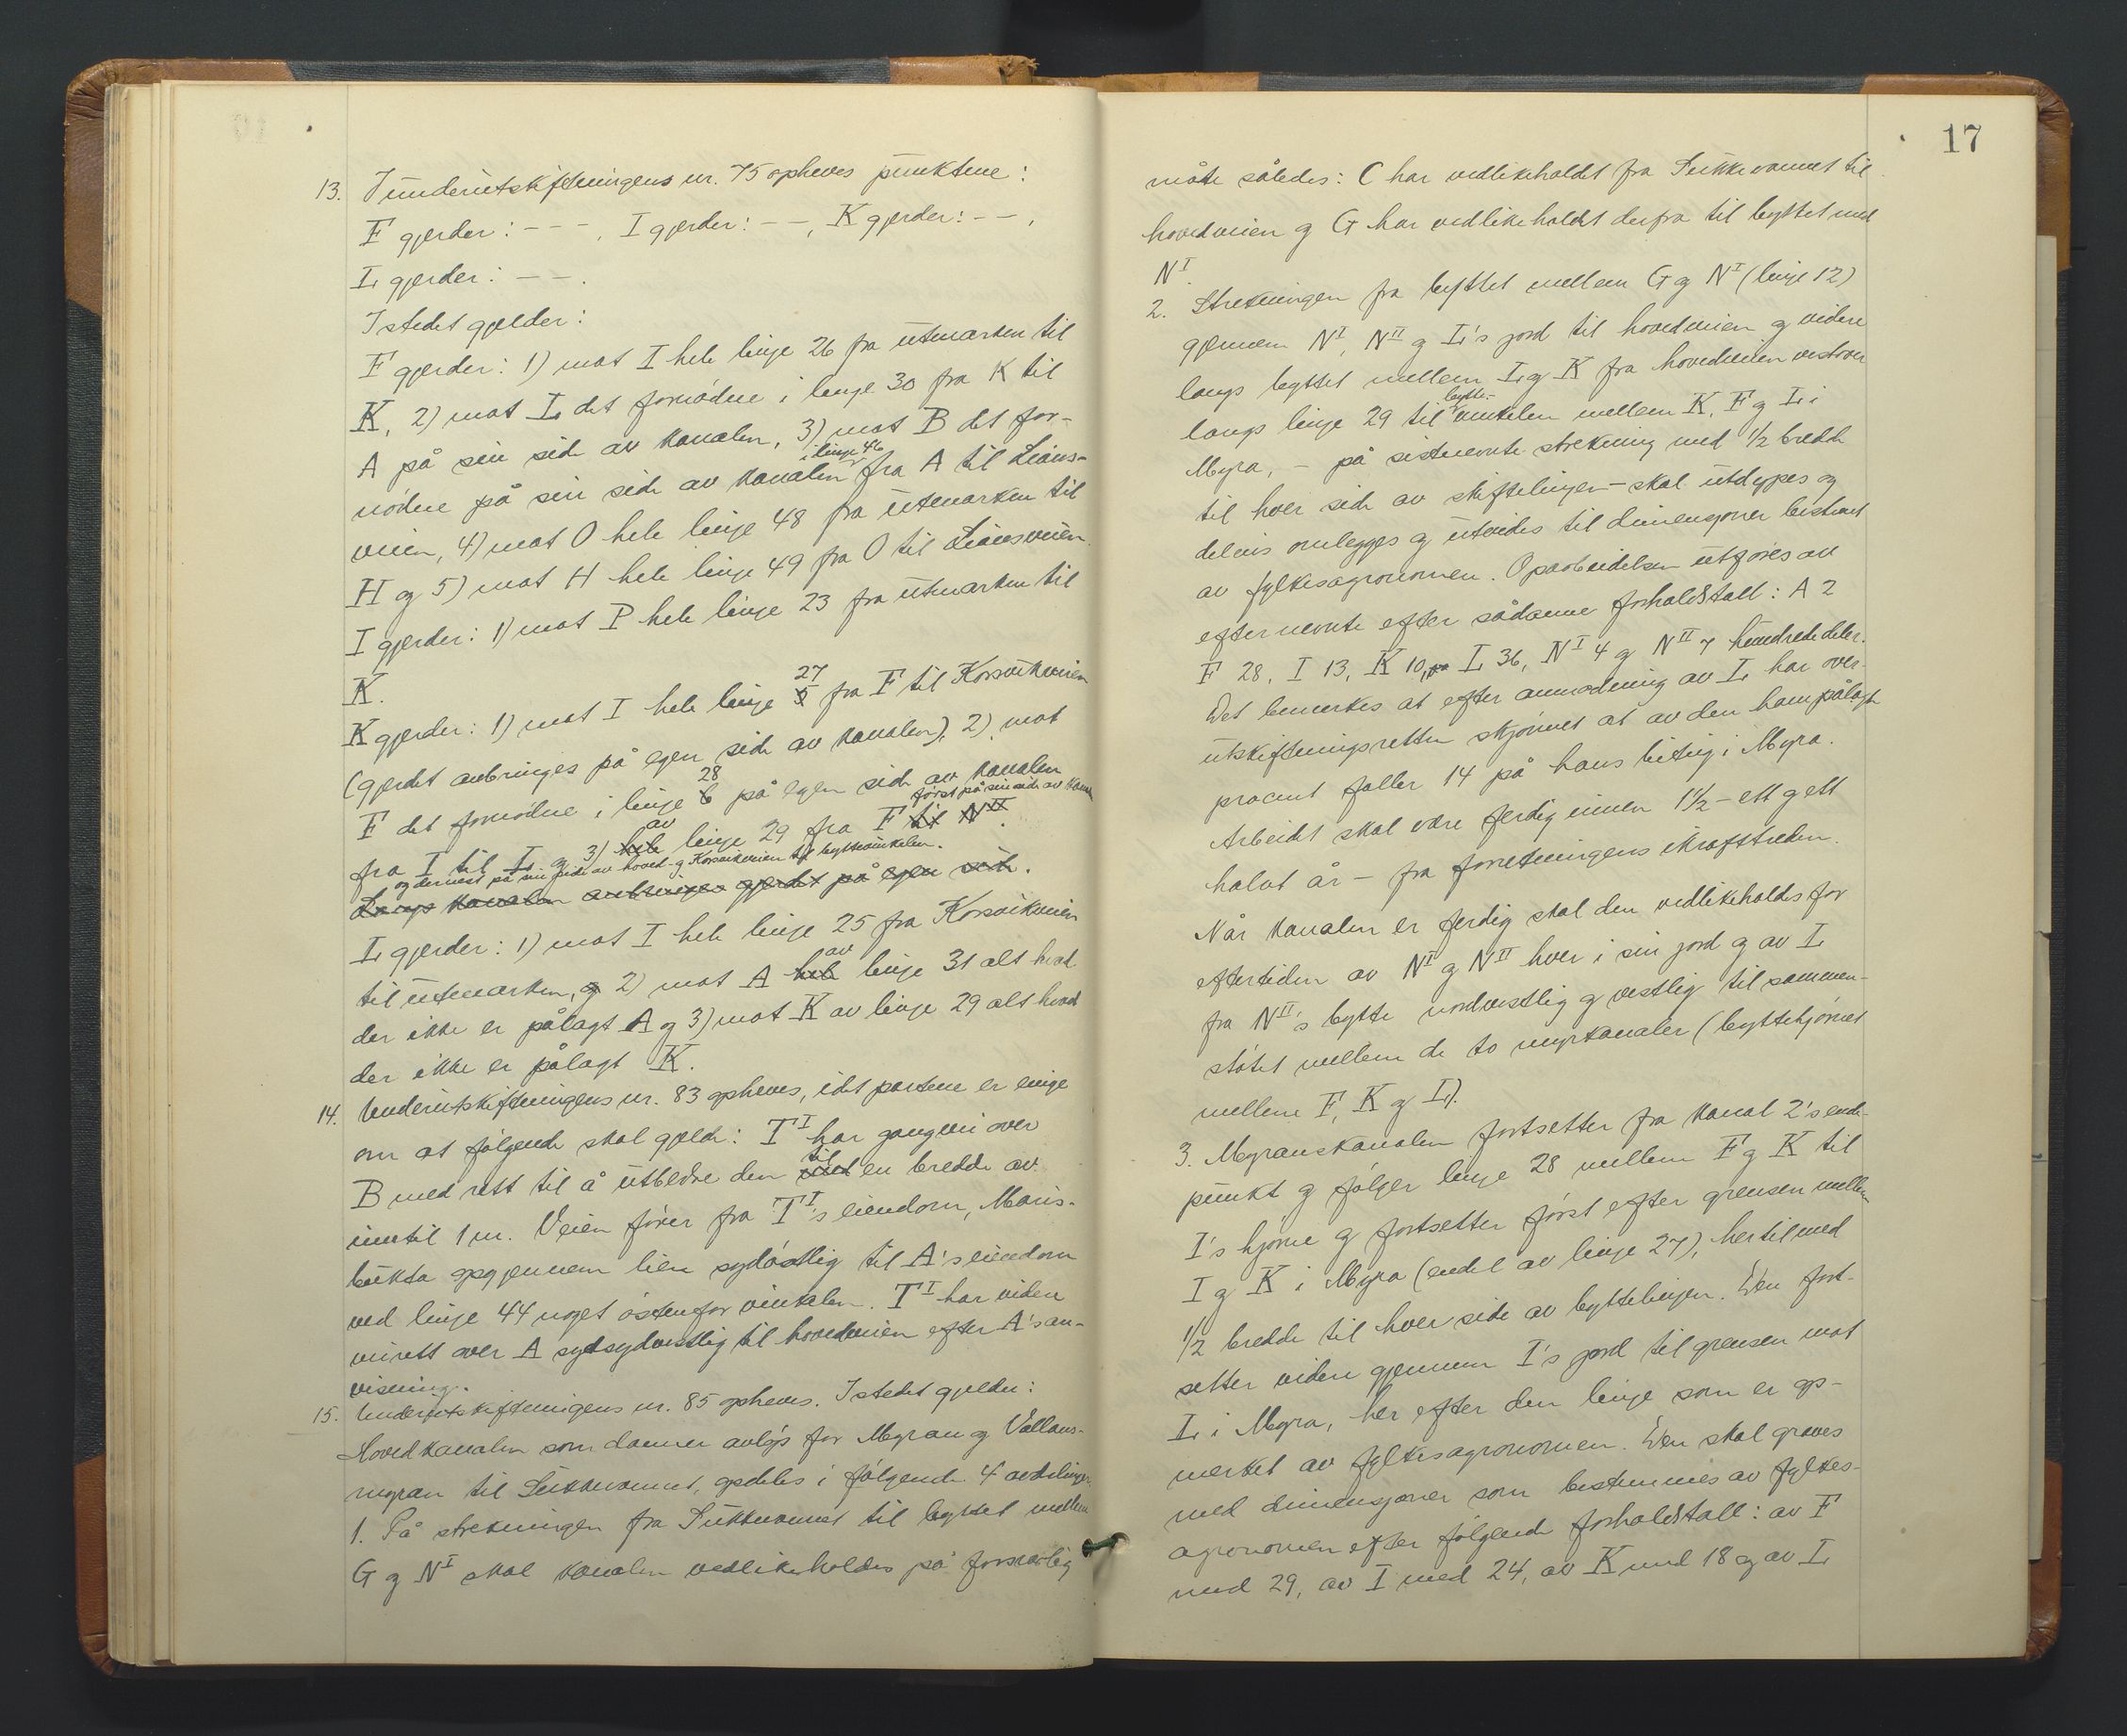 13. I underutskiftningens nr. 75 opheves punktene:
F gjerder: - - - , I gjerder: - - , K gjerder: - - ,
L gjerder: - - .
Istedet gjelder:
F gjerder: 1) mot I hele linje 26 fra utmarken til
K, 2) mot L det fornødne i linje 30 fra K til
A på sin side av kanalen, 3) mot B det for-
nødne på sin side av kanalen i linje 46 fra A til Lians-
veien, 4) mot O hele linje 48 fra utmarken til
H og 5) mot H hele linje 49 fra O til Liansveien.
I gjerder: 1) mot P hele linje 23 fra utmarken til
K.
K gjerder: 1) mot I hele linje 27 fra F til Korsvikveien
(gjerdet anbringes på egen side av kanalen), 2) mot
F det fornødne i linje 28 på egen side av kanalen
fra I til L og 3) hele av linje 29 fra F til N II. først på sin side av kanalen
og dernest på sin side av hoved- og Korsvikveien til byttevinkelen.
Langs kanalen anbringes gjerdet på egen side.
L gjerder: 1) mot I hele linje 25 fra Korsvikveien
til utmarken, og 2) mot A hele av linje 31 alt hvad
der ikke er pålagt A og 3) mot K av linje 29 alt hvad
der ikke er pålagt K.
14. Underutskiftningens nr. 83 opheves, idet partene er enige
om at følgende skal gjelde: T I har gangvei over
B med rett til å utbedre den til en bredde av
inntil 1 m. Veien fører fra T I's eiendom, Maris-
bukta opgjennem lien sydøstlig til A's eiendom
ved linje 44 noget østenfor vinkelen. T I har videre
veirett over A sydsydvestlig til hovedveien efter A's an-
visning.
15. Underutskiftningens nr. 85 opheves. Istedet gjelder:
Hovedkanalen som danner avløp for Myran og Vollans-
myran til Sukkevannet, opdeles i følgende 4 avdelinger
1. På strekningen fra Sukkevannet til byttet mellem
G og N I skal kanalen vedlikeholdes på forsvarlig
17
måte således: C har vedlikeholdet fra Sukkevannet til
hovedveien og G har vedlikeholdet derfra til byttet med
N I.
2. Strekningen fra byttet mellem G og N I (linje 12)
gjennem N I, N II og L's jord til hovedveien og videre
langs byttet mellem L og K fra hovedveien vestover
langs linje 29 til bytte-vinkelen mellem K, F og L i
Myra, - på sistnevnte strekning med 1/2 bredde
til hver side av skiftelinjen - skal utdypes og
delvis omlegges og utvides til dimensjoner bestemt
av fylkesagronomen. Oparbeidelsen utføres av
efternevnte efter sådanne forholdstall: A 2
F 28, I 13, K 10, L 36, N I 4 og N II 7 hundrededeler.
Det bemerkes at efter anmodning av L har over-
utskiftningsretten skjønnet at av den ham pålagte
procent faller 14 på hans beting i Myra.
Arbeidet skal være ferdig innen 1 1/2 - ett og ett
halvt år - fra forretningens ikrafttreden.
Når kanalen er ferdig skal den vedlikeholdes for
eftertiden av N I og N II hver i sin jord og av L
fra N II's bytte nordvestlig og vestlig til sammen-
støtet mellem de to myrkanaler (byttehjørnet
mellem F, K og L).
3. Myranskanalen fortsetter fra kanal 2's ende-
punkt og følger linje 28 mellem F og K til
I's hjørne og fortsetter først efter grensen mellem
I og K i Myra (endel av linje 27), hertil med
1/2 bredde til hver side av byttelinjen. Den fort-
setter videre gjennem I's jord til grensen mot
L i Myra, her efter den linje som er op-
merket av fylkesagronomen. Den skal graves
med dimensjoner som bestemmes av fylkes-
agronomen efter følgende forholdstall: av F
med 29, av I med 24, av K med 18 og av L